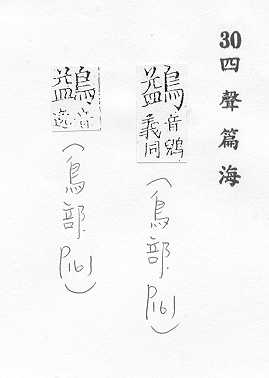 30四聲篇海
鷁音義同
(鳥部P161)
鷁音
(鳥部P161)